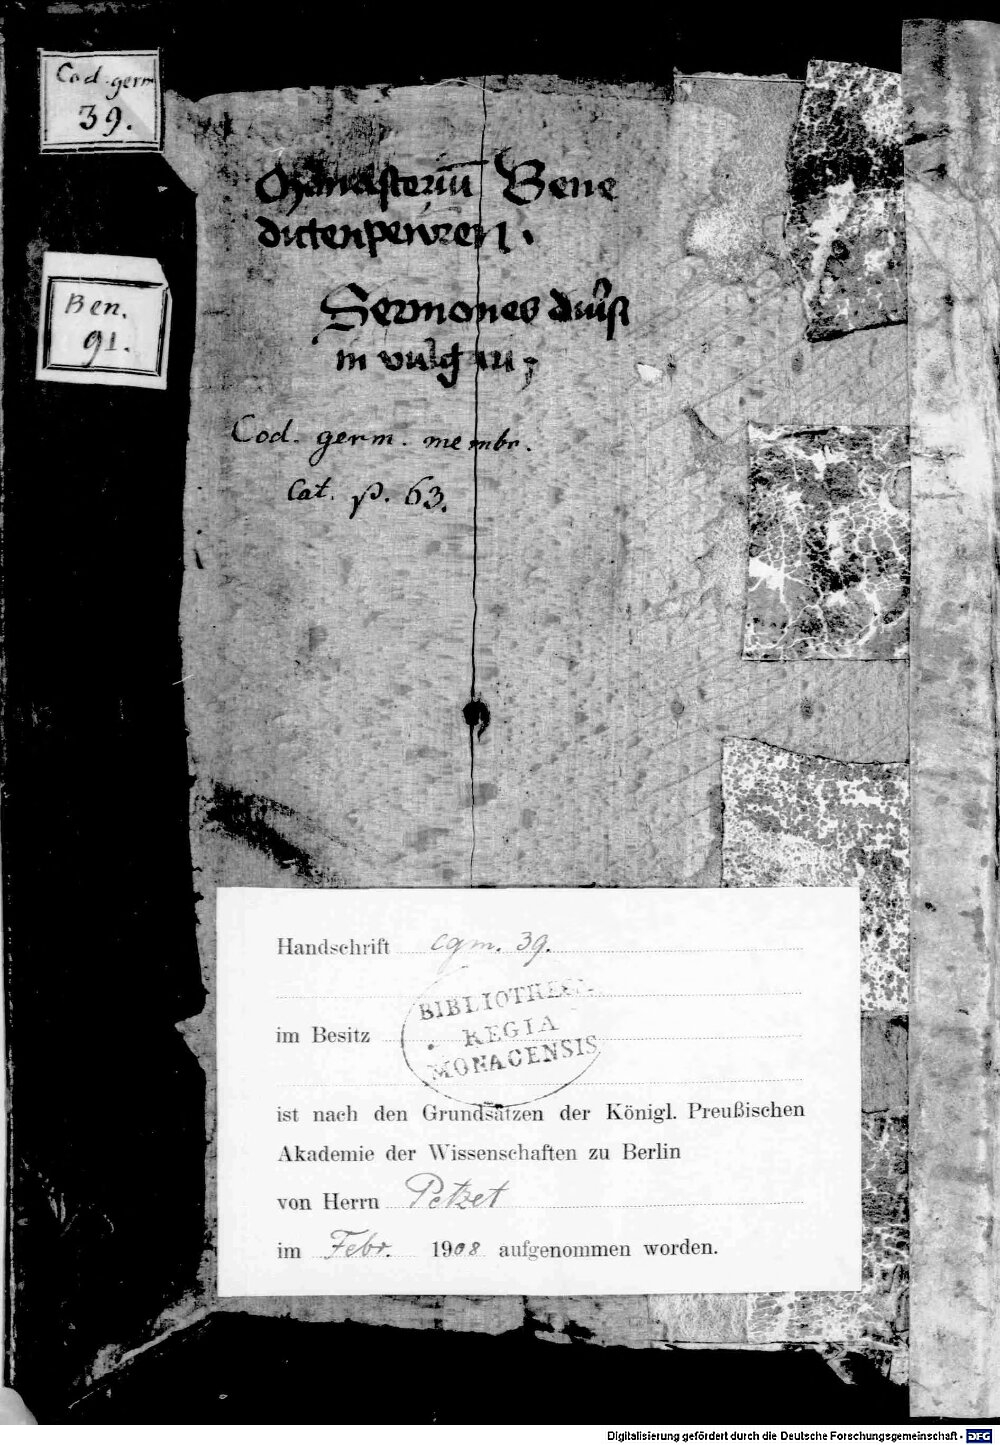 Cod. germ
39.
Ben.
91.
Monasteriu̅ Bene
dictenpewren.
Sermones diu̅si
in vulgari;
Cod. germ. membr.
Cat. p. 63.
Handschrift cgm. 39.
BIBLIOTHECA
REGIA
MONACENSIS
im Besitz
ist nach den Grundsätzen der Königl. Preußischen
Akademie der Wissenschaften zu Berlin
von Herrn Petzet
im Febr. 1908 aufgenommen worden.
Digitalisierung gefördert durch die Deutsche Forschungsgemeinschaft - DFG